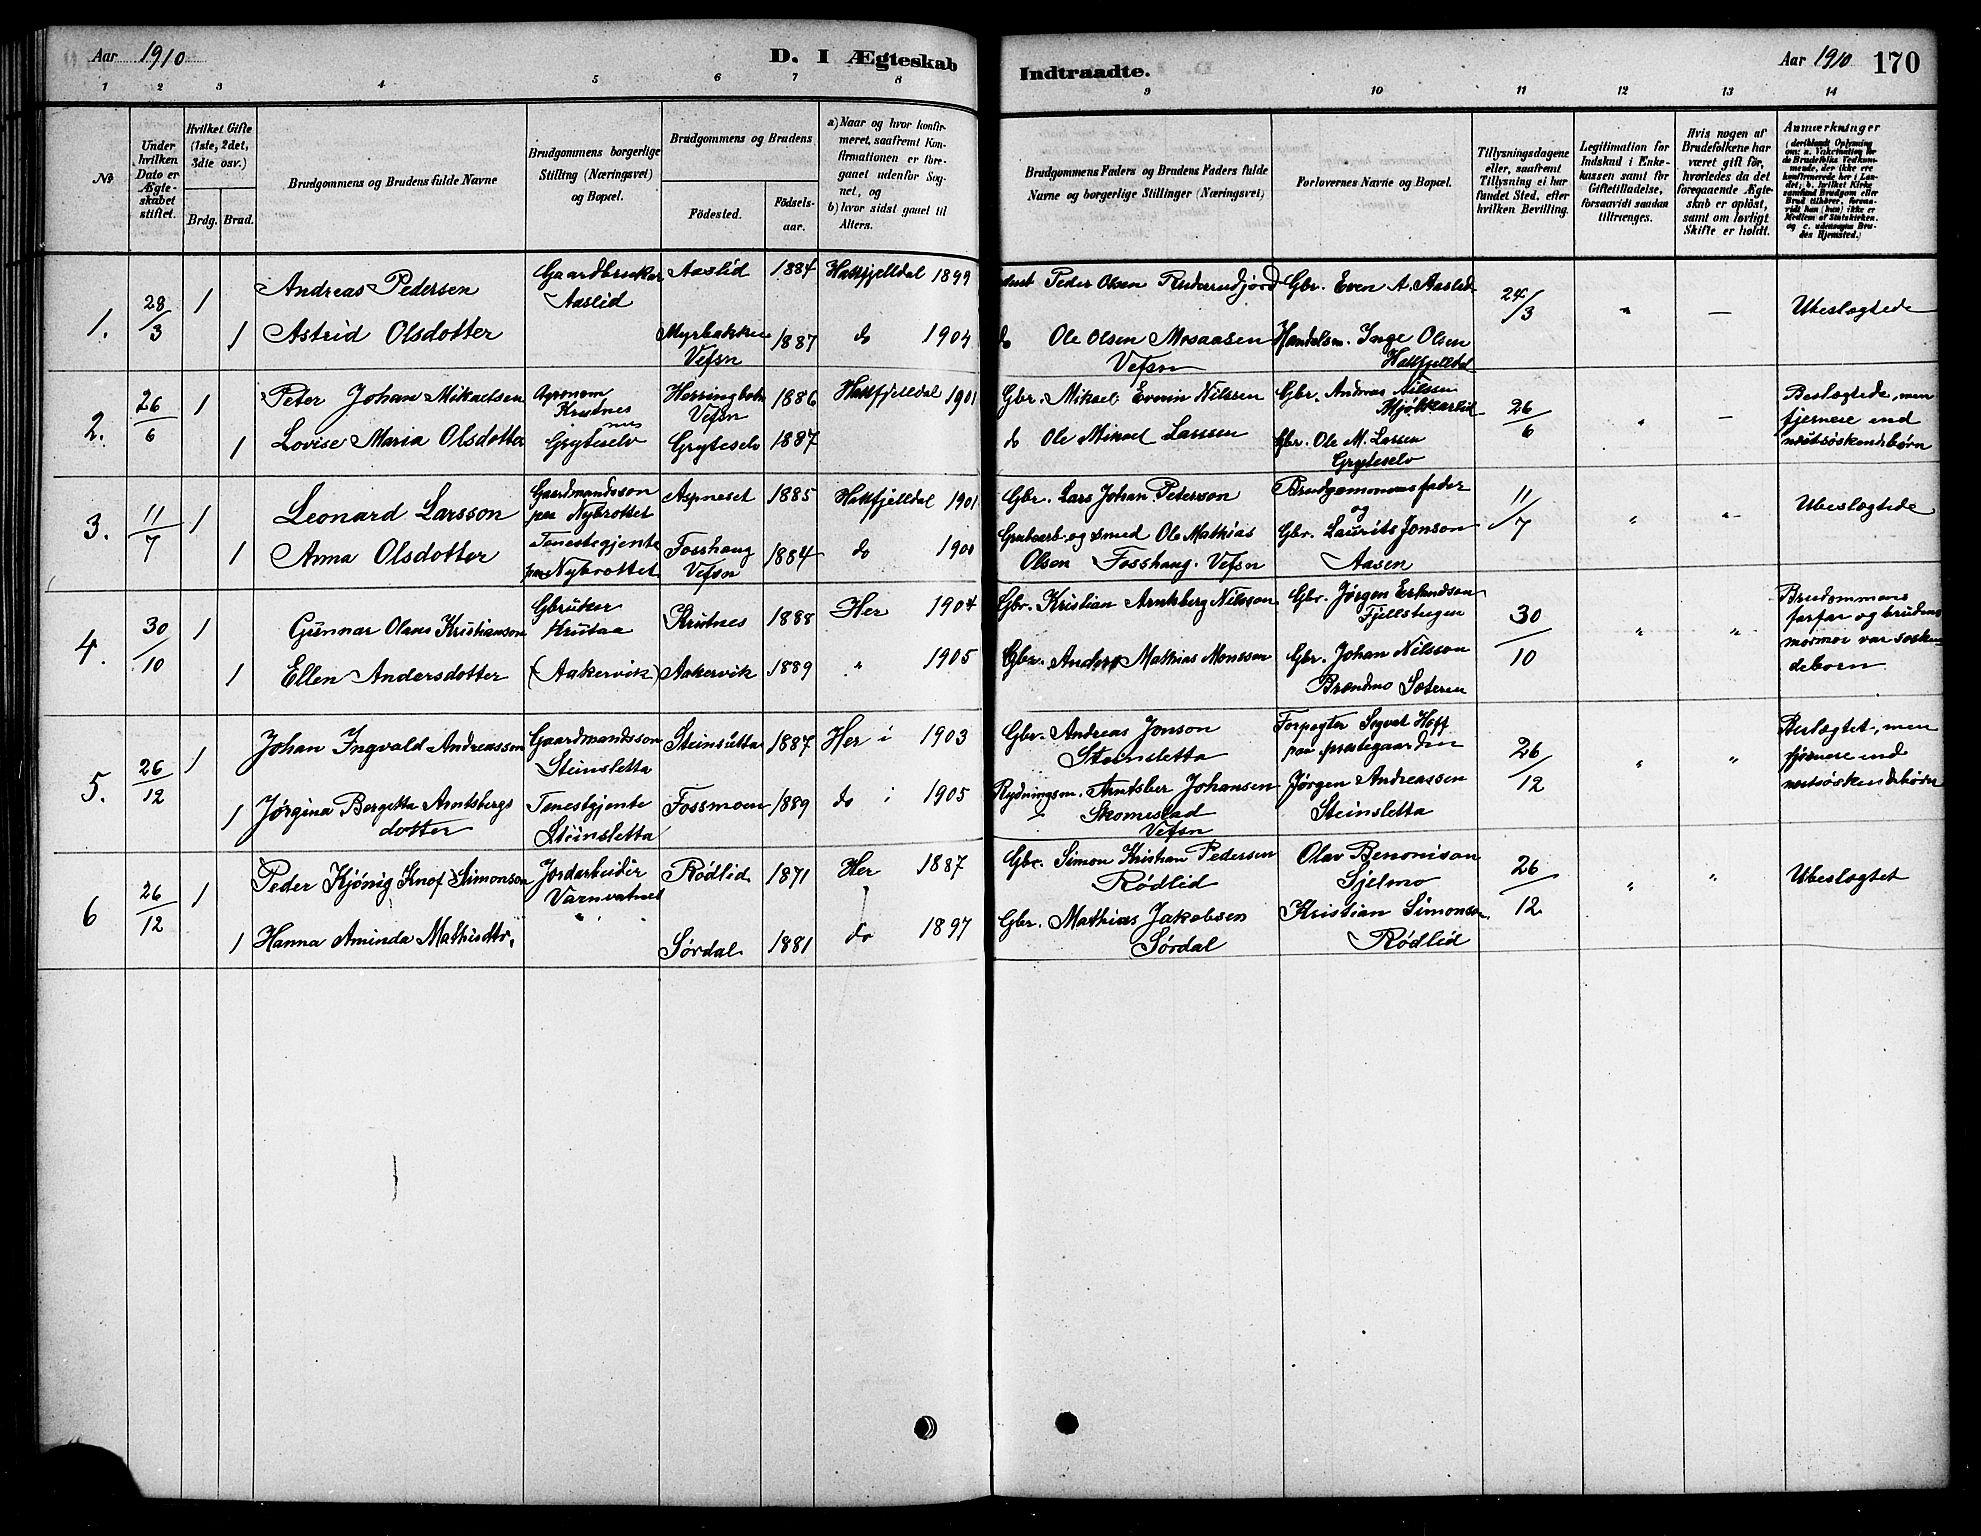 Aar 1910
D. I Ægteskab
Indtraadte.
Aar 1910
170
1 2 3 4 5 6 7 8 9 10 11 12 13 14
№
Under hvilken Dato er Ægteskabet stiftet.
Hvilket Gifte (1ste, 2det, 3die osv.)
Brdg.
Brud.
Brudgommens og Brudens fulde Navne
Brudgommens borgerlige Stilling (Næringsvei) og Bopæl.
Brudgommens og Brudens
Fødested.
Fødselsaar.
a) Naar og hvor konfirmeret, saafremt Konfirmationen er foregaaet udenfor Sognet, og
b) hvor sidst gaaet til Alters.
Brudgommens Faders og Brudens Faders fulde Navne og borgerlige Stillinger (Næringsvei)
Forlovernes Navne og Bopæl.
Tillysningsdagene eller, saafremt Tillysning ei har fundet Sted, efter hvilken Bevilling.
Legitimation for Indskud i Enkekassen samt for Giftetilladelse, forsaavidt saadan tiltrænges.
Hvis nogen af Brudefolkene har været gift før, hvorledes da det foregaaende Ægteskab er opløst, samt om lovligt Skifte er holdt.
Anmærkninger
1. 28/3 1 Andreas Pedersen Gaardbruker Aaslid Aaslid 1884 Hatfjelldal 1899 Peder Olsen Gbr. Even A. Aaslid 24/3 " — Ubeslægtede
1 Astrid Olsdotter Myrbakken Vefsn 1887 do 1904 do Ole Olsen Mosaasen Vefsn Handelsm. Inge Olsen Hatfjelldal
2. 26/6 1 Peter Johan Mikaelsen Agronom Krutnes Herringbotn Vefsn 1886 Hatfjelldal 1901 Gbr. Mikael Evenin Nilssen Gbr. Andreas Nilssen Mjølkarlid 26/6 " — Beslægtede, men fjernere end næstsøskendebørn
1 Lovise Maria Olsdotter Gryteselv Gryteselv 1887 do Ole Mikael Larssen Gbr. Ole M. Larsen Gryteselv
3. 11/7 1 Leonard Larsson Gaardmandsson paa Nybrottet Aspneset 1885 Hatfjelldal 1901 Gbr. Lars Johan Peterson Brudgommens fader og 11/7 " " Ubeslægtede
1 Anna Olsdotter Tenestegjente paa Nybrottet Fosshaug Vefsn 1884 do 1900 Grubearb. og smed Ole Mathias Olsen Fosshaug. Vefsn Gbr. Laurits Jonson Aasen
4. 30/10 1 Gunnar Olaus Kristianson Gbruker Krutaa Krutnes 1888 Her 1904 Gbr. Kristian Arntsberg Nilsson Gbr. Jørgen Erlandson Fjellstugen 30/10 " " Brudgommens farfar og brudens mormor var søskendeborn
1 Ellen Andersdotter (Aakervik) Aakervik 1889 " 1905 Gbr. Anders Mathias Monsson Gbr. Johan Nilsson Brændmo Sæteren
5. 26/12 1 Johan Ingvald Andreasson Gaardmandsson Steinsletta Steinsletta 1887 Her i 1903 Gbr. Andreas Jonson Steinsletta Forpagter Sigvat Hoff paa prestegaarden 26/12 " " Beslægtet, men fjernere end næstsøskendebørn
1 Jørgina Bergetta Arntsbergsdotter Tenestgjente Steinsletta Fossmoen 1889 do i 1905 Rydningsm. Arntsber Johansen Skomestad Vefsn Jørgen Andreassen Steinsletta
6 26/12 1 Peder Kjønig Knof Simonson Jordarbeider Varnvatnet Rødlid 1871 Her 1887 Gbr. Simon Kristian Pedersen Rødlid Olav Benonison Sjelmo 26/12 " " Ubeslægtet
1 Hanna Aminda Mathisdtr. " Sørdal 1881 do 1897 Gbr. Mathias Jakobsen Sørdal Kristian Simonson Rødlid